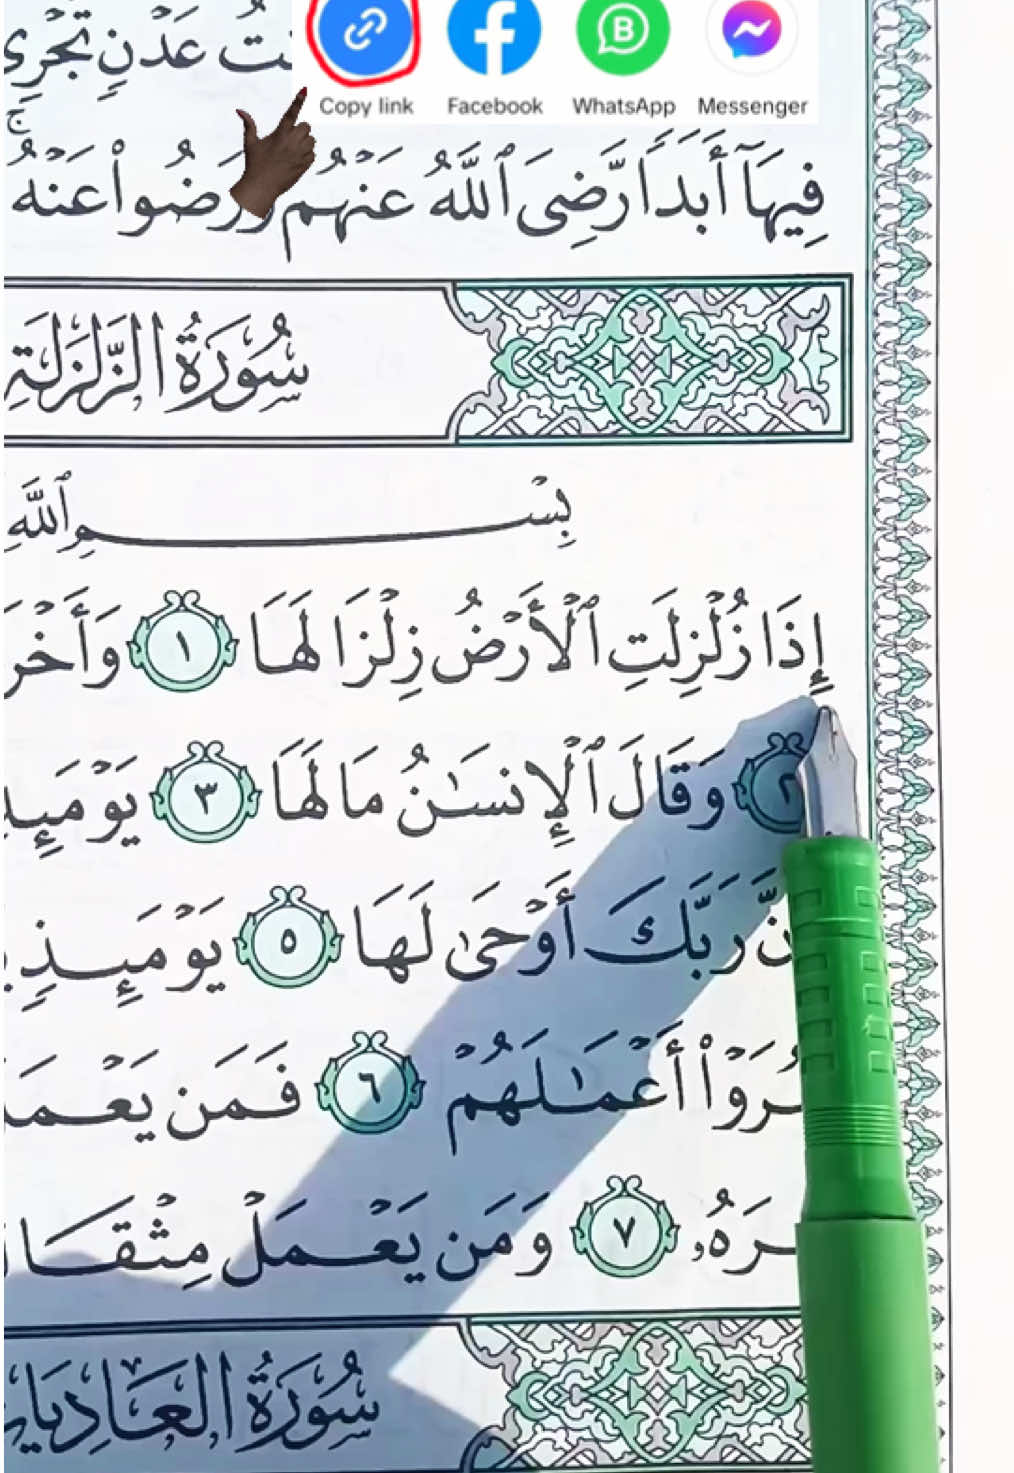 Copy link Facebook WhatsApp Messenger
عَدْنٍ تَجْرِي
فِيهَآ أَبَدًا رَّضِيَ ٱللَّهُ عَنْهُمْ وَرَضُوا۟ عَنْهُ ۚ
سُورَةُ الزَّلْزَلَةِ
بِسْمِ ٱللَّهِ
إِذَا زُلْزِلَتِ ٱلْأَرْضُ زِلْزَالَهَا ١ وَأَخْرَ
٢ وَقَالَ ٱلْإِنسَٰنُ مَا لَهَا ٣ يَوْمَئِ
نَّ رَبَّكَ أَوْحَىٰ لَهَا ٥ يَوْمَئِذٍ
رَوْا۟ أَعْمَٰلَهُمْ ٦ فَمَن يَعْمَ
رَهُۥ ٧ وَمَن يَعْمَلْ مِثْقَا
سُورَةُ العَادِيَاتِ